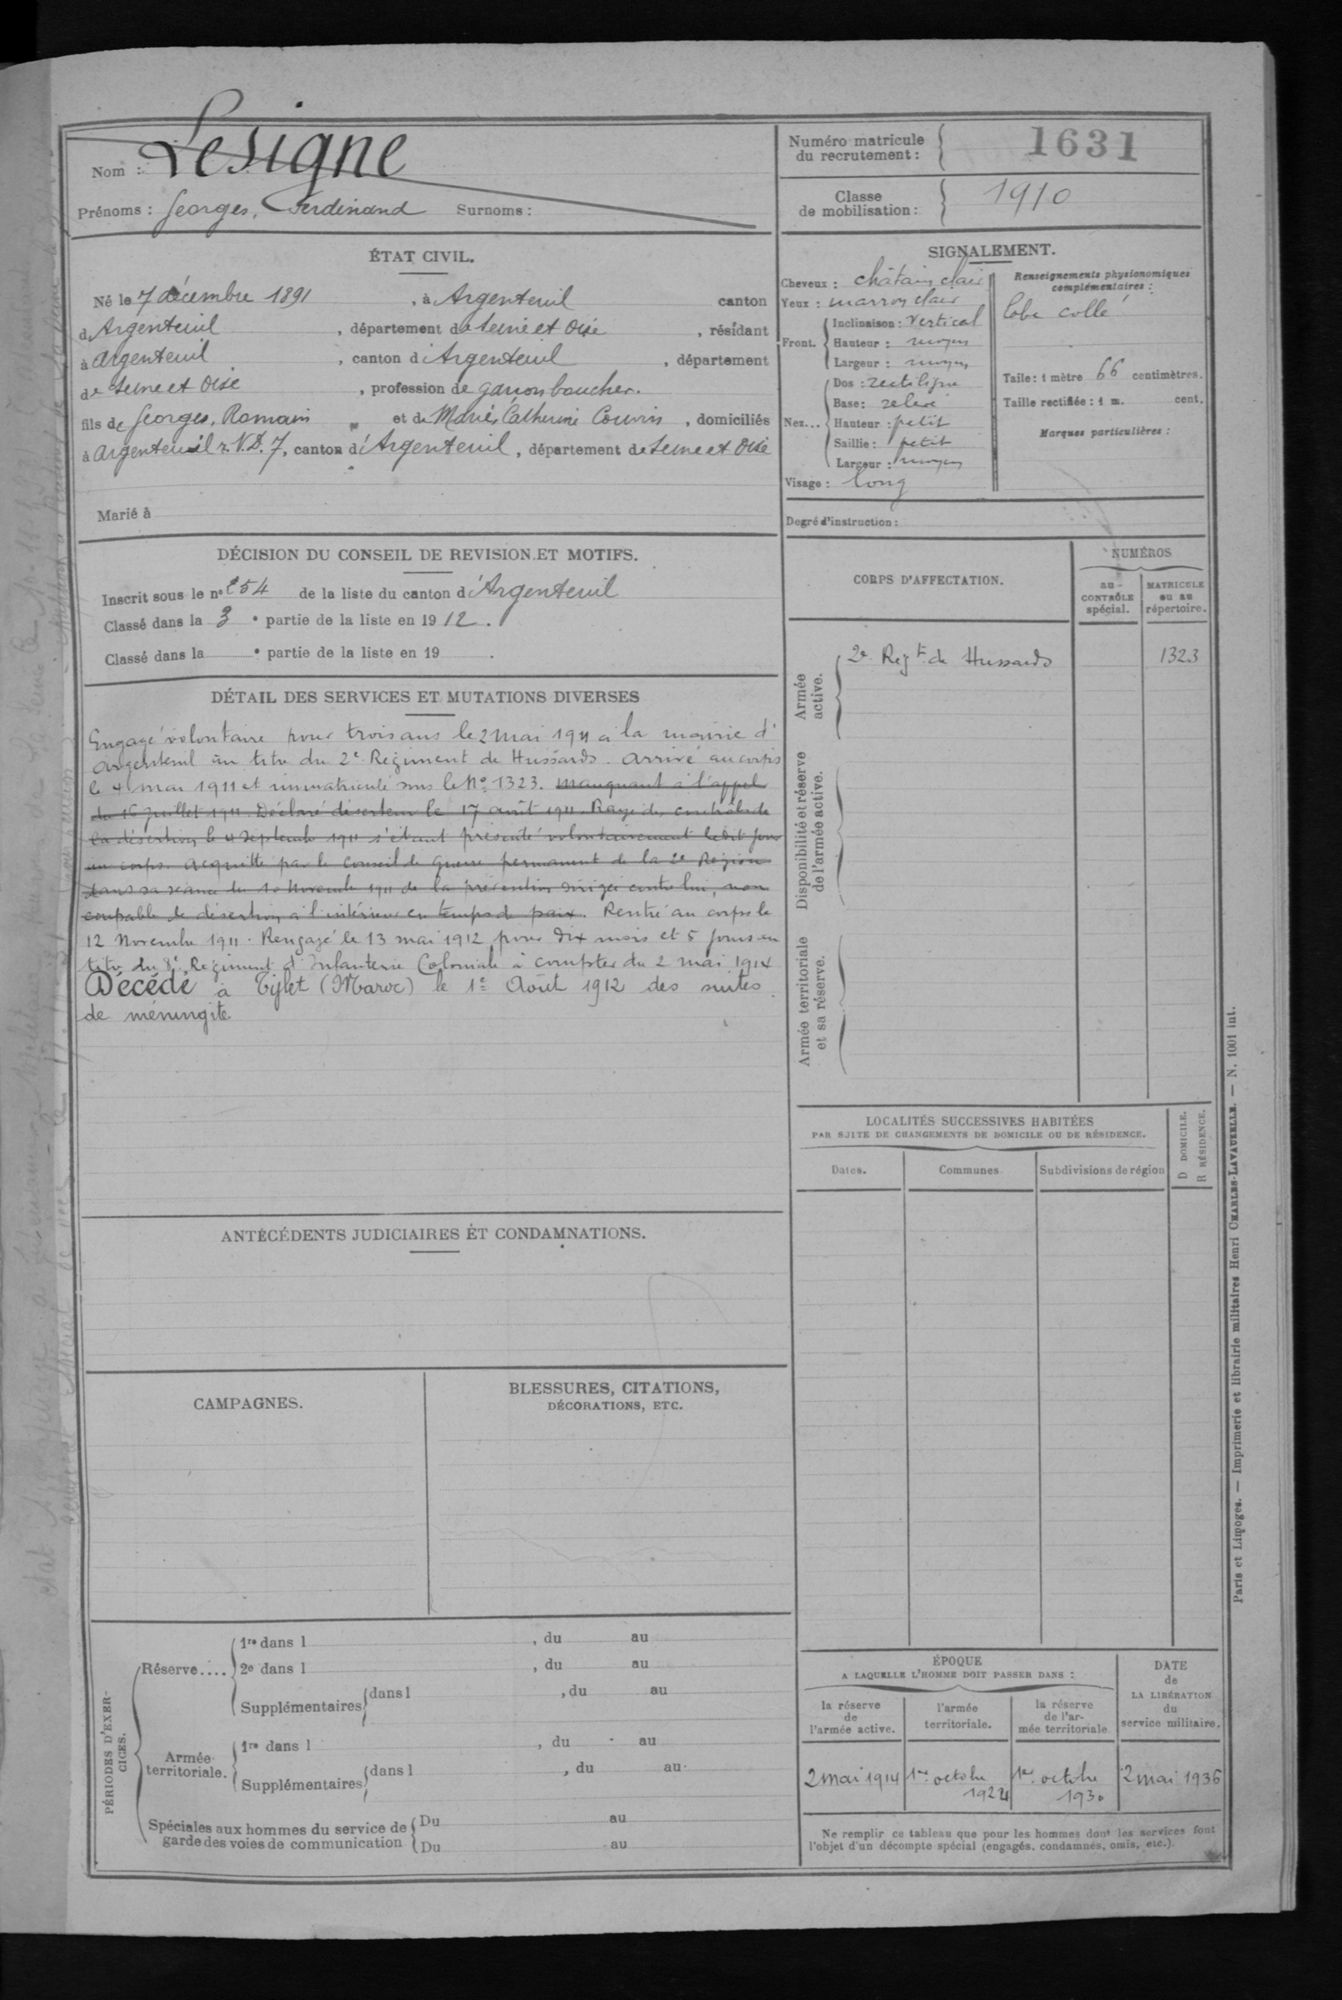 Nom : Lesigne
Prénoms : Georges, Ferdinand Surnoms :
Numéro matricule du recrutement : 1631
Classe de mobilisation : 1910
ÉTAT CIVIL.
Né le 7 décembre 1891, à Argenteuil canton
d'Argenteuil, département de Seine et Oise, résidant
à Argenteuil, canton d'Argenteuil, département
de Seine et Oise, profession de garçon boucher.
fils de Georges, Romain et de Marie, Catherine Couvin, domiciliés
à Argenteuil r. N.D. 7, canton d'Argenteuil, département de Seine et Oise
Marié à
SIGNALEMENT.
Cheveux : châtain clair
Yeux : marron clair
Front. Inclinaison : Vertical
Hauteur : moyen
Largeur : moyen
Nez... Dos : rectiligne
Base : relevé
Hauteur : petit
Saillie : petit
Largeur : moyen
Visage : long
Renseignements physionomiques complémentaires :
lobe collé
Taille : 1 mètre 66 centimètres.
Taille rectifiée : 1 m. cent.
Marques particulières :
Degré d'instruction :
DÉCISION DU CONSEIL DE REVISION ET MOTIFS.
Inscrit sous le n° 54 de la liste du canton d'Argenteuil
Classé dans la 3e partie de la liste en 1912.
Classé dans la e partie de la liste en 19 .
DÉTAIL DES SERVICES ET MUTATIONS DIVERSES
Engagé volontaire pour trois ans le 2 mai 1911 à la mairie d'
Argenteuil au titre du 2e Régiment de Hussards. Arrivé au corps
le 4 mai 1911 et immatriculé sous le No 1323. Manquant à l'appel
du 16 juillet 1911. Déclaré déserteur le 17 août 1911. Rayé des contrôles de
la désertion le 4 Septembre 1911 s'étant présenté volontairement ledit jour
au corps. Acquitté par le Conseil de guerre permanent de la 2e Région
dans sa séance du 10 Novembre 1911 de la prévention dirigée contre lui, non
coupable de désertion à l'intérieur en temps de paix. Rentré au corps le
12 Novembre 1911. Rengagé le 13 mai 1912 pour dix mois et 5 jours au
titre du 8e Régiment d'Infanterie Coloniale à compter du 2 mai 1914
Décédé à Tiflet (Maroc) le 1er Août 1912 des suites
de méningite.
CORPS D'AFFECTATION.
NUMÉROS
au CONTRÔLE spécial.
MATRICULE ou au répertoire.
Armée active.
2e Régt de Hussards 1323
Disponibilité et réserve de l'armée active.
Armée territoriale et sa réserve.
LOCALITÉS SUCCESSIVES HABITÉES
PAR SUITE DE CHANGEMENTS DE DOMICILE OU DE RÉSIDENCE.
D DOMICILE.
R RÉSIDENCE.
Dates. Communes. Subdivisions de région
ANTÉCÉDENTS JUDICIAIRES ET CONDAMNATIONS.
CAMPAGNES.
BLESSURES, CITATIONS,
DÉCORATIONS, ETC.
PÉRIODES D'EXERCICES.
Réserve.... 1re dans l , du au
2e dans l , du au
Supplémentaires dans l , du au
Armée territoriale. 1re dans l , du au
Supplémentaires dans l , du au
Spéciales aux hommes du service de garde des voies de communication Du au
Du au
ÉPOQUE
A LAQUELLE L'HOMME DOIT PASSER DANS :
DATE de LA LIBÉRATION du service militaire.
la réserve de l'armée active.
l'armée territoriale.
la réserve de l'armée territoriale
2 mai 1914 1er octobre 1924 1er octobre 1930 2 mai 1936
Ne remplir ce tableau que pour les hommes dont les services font
l'objet d'un décompte spécial (engagés, condamnés, omis, etc.).
Paris et Limoges. — Imprimerie et librairie militaires Henri CHARLES-LAVAUZELLE. — N. 1001 int.